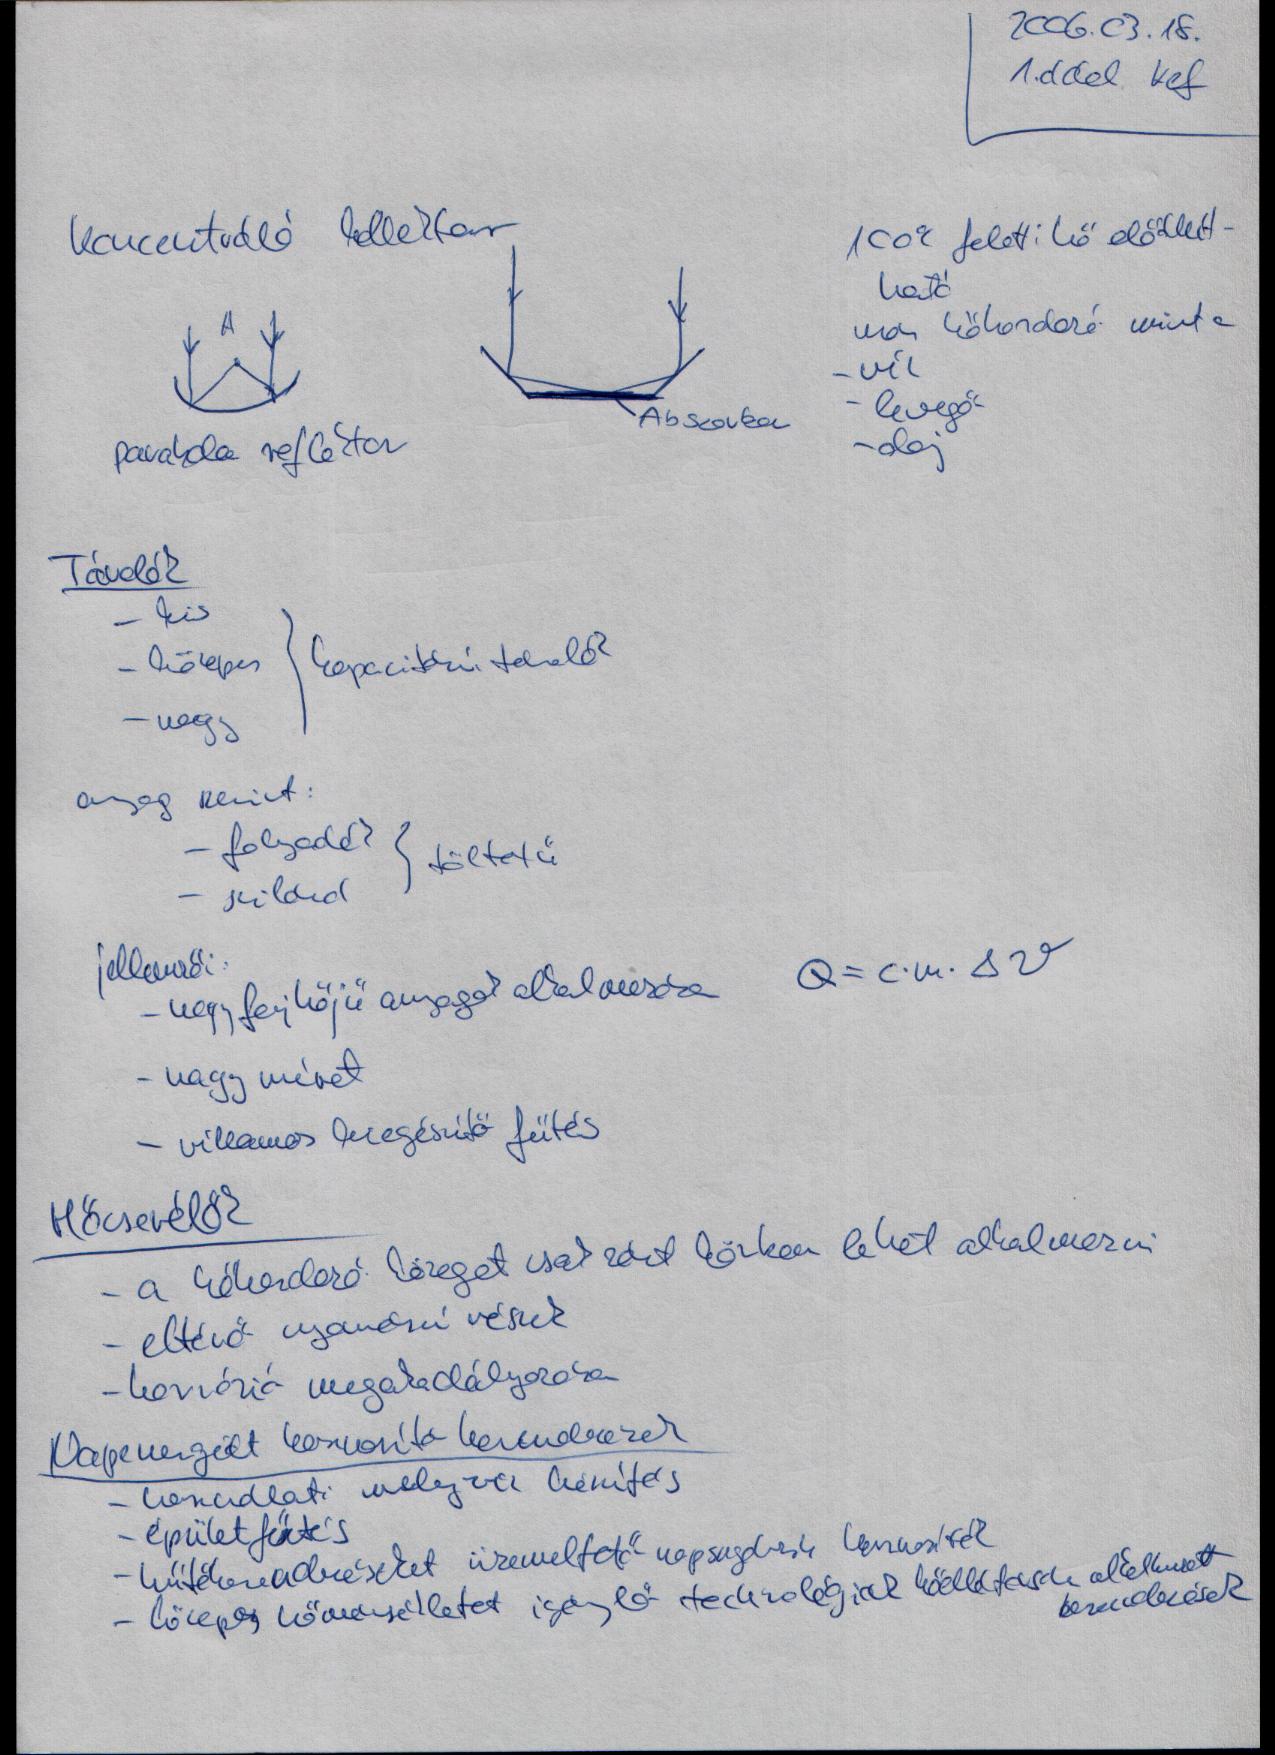 2006.03.18.
1. oldal Kef
Koncentráló kollektor
100°C feletti hő előállít-
ható
más hőhordozó mint a
- víz
- levegő
- olaj
A
Abszorber
parabola reflektor
Tárolók
- kis
- közepes
- nagy
kapacitású tároló
anyag szerint:
- folyadék
- szilárd
töltetű
jellemzői:
- nagy fajhőjű anyagok alkalmazása
Q = c·m·Δϑ
- nagy méret
- villamos kiegészítő fűtés
Hőcserélők
- a hőhordozó közeget csak zárt körben lehet alkalmazni
- eltérő nyomású részek
- korrózió megakadályozása
Napenergiát hasznosító berendezések
- használati melegvíz készítés
- épületfűtés
- hűtőberendezéseket üzemeltető napsugárzás hasznosítók
- közepes hőmérsékletet igénylő technológiák hőellátására alkalmazott
berendezések